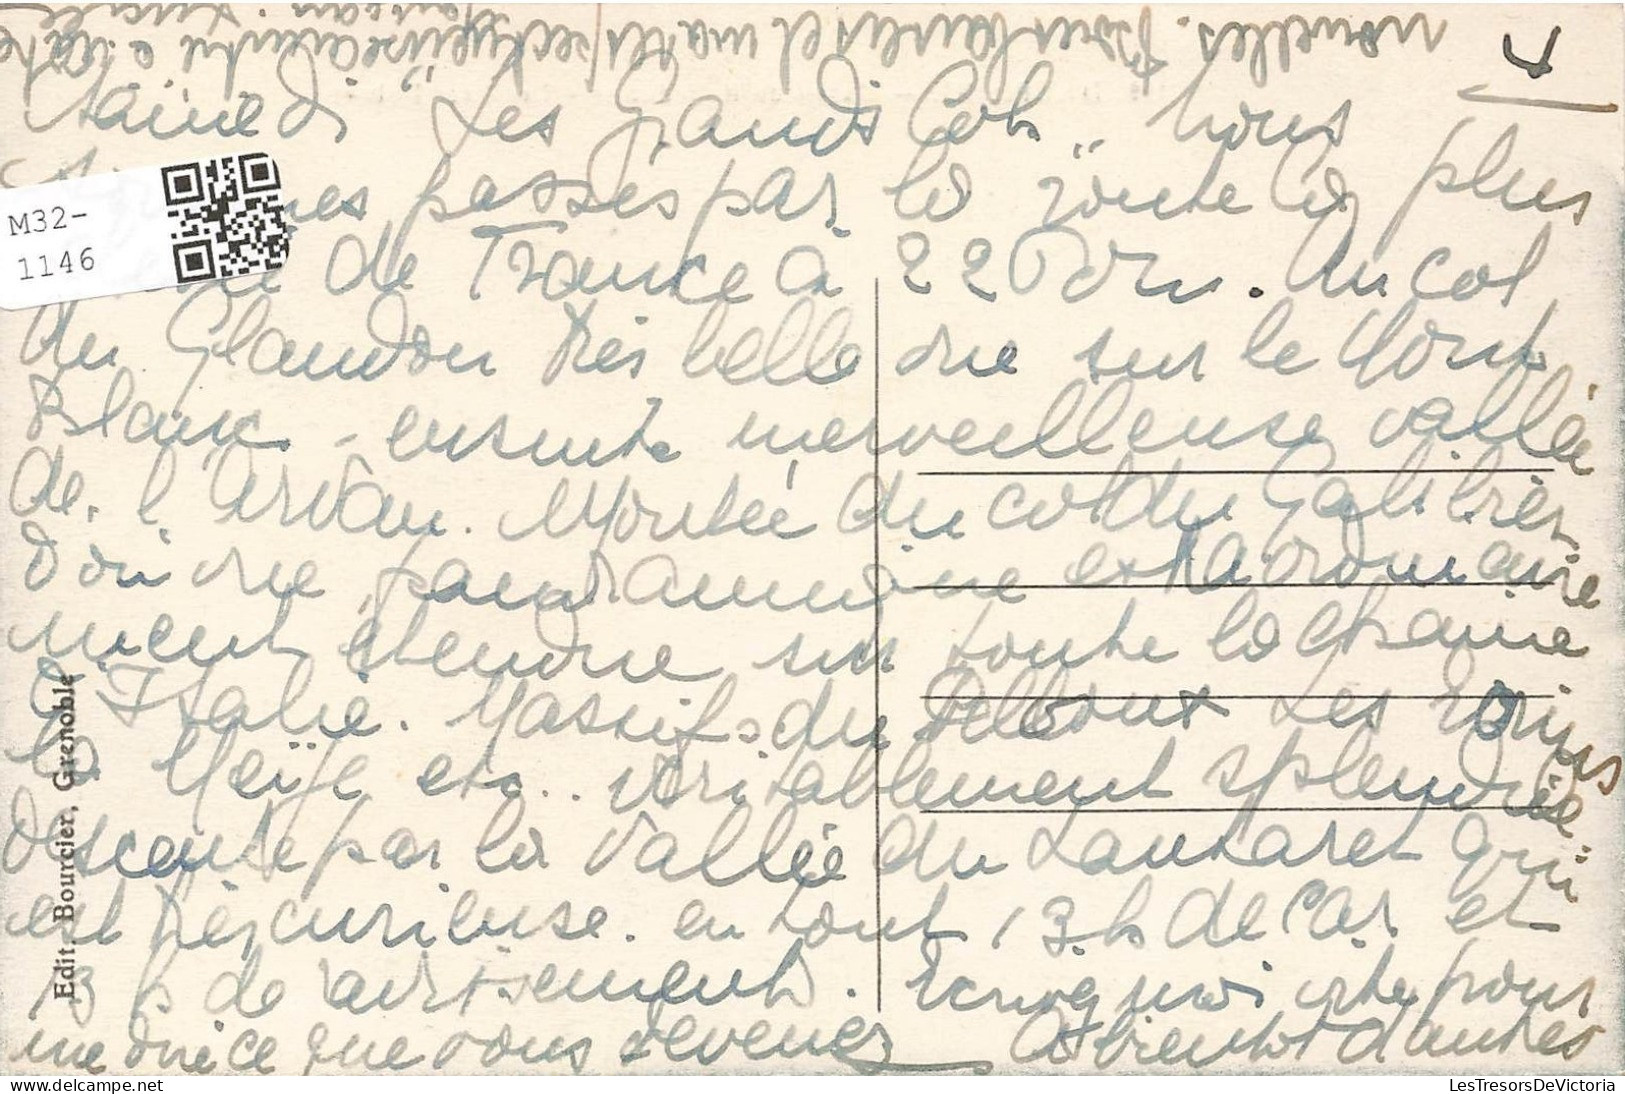 Samedi Les Grands Cols,, nous
passés par la route la plus
de France à 2270 m. Au col
du Glandon très belle vue sur le Mont
Blanc - ensuite merveilleuse vallée
de l'Arvan. Montée du col du Galibier
d'où vue panoramique extraordinaire
ment étendue sur toute la chaine
d'Italie. Massifs du Pelvoux Les Ecrins
la Meije etc.. véritablement splendide
descente par la vallée du Lautaret qui
est très curieuse. en tout 13 h de car et
13 h de ravissement. Ecrivez moi vite pour
me dire ce que vous devenez A bientôt d'autres
nouvelles. Bons baisers et mates
M32-
1146
Edit. Bourcier, Grenoble
LesTresorsDeVictoria